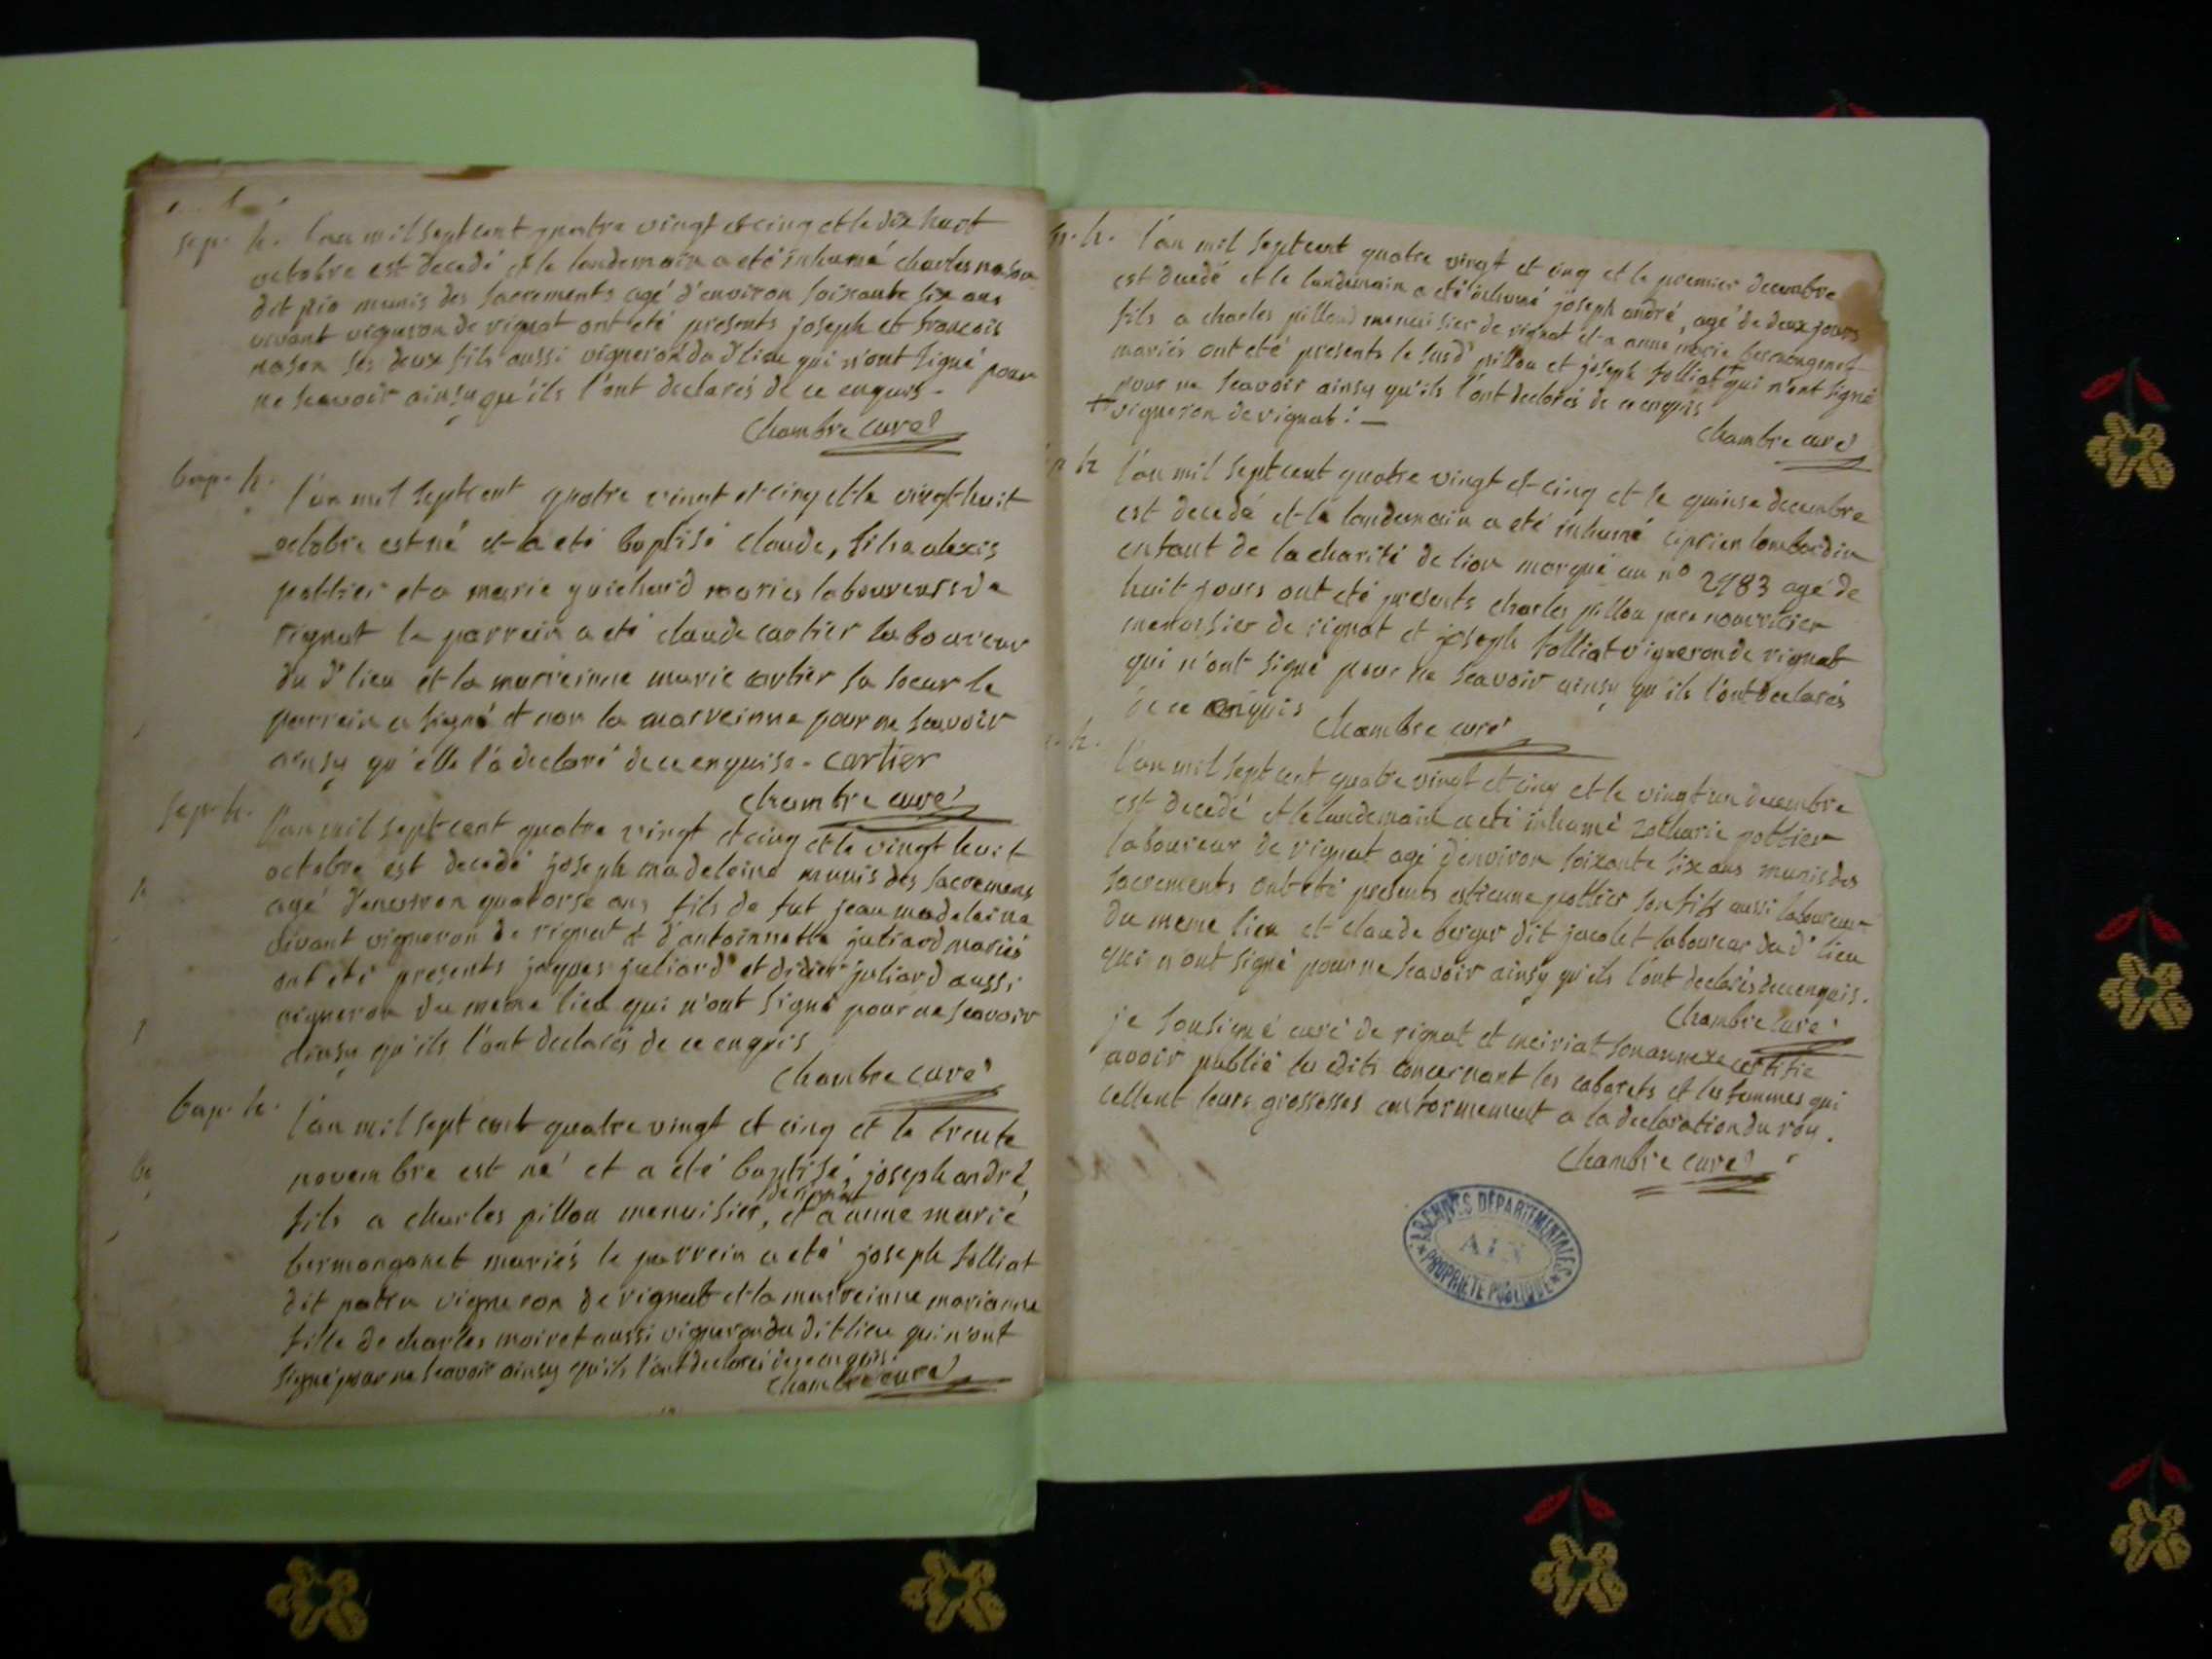 sep. h. l'an mil sept cent quatre vingt et cinq et le dix huit
octobre est decedé et le landemain a eté inhumé charles nason
dit pio munis des sacrements agé d'environ soixante six ans
vivant vigneron de rignat ont eté presents joseph et francois
nason ses deux fils aussi vigneron du d lieu qui n'ont signé pour
ne scavoir ainsy qu'ils l'ont declarés de ce enquis -
Chambre curé
bap. h. l'an mil sept cent quatre vingt et cinq et le vingt huit
octobre est né et a eté baptisé claude, fils a alexis
pottier et a marie guichard mariés laboureurs de
rignat le parrein a eté claude cartier laboureur
du d lieu et la marreinne marie cartier sa soeur le
parrein a signé et non la marreinne pour ne scavoir
ainsy qu'elle l'a declaré de ce enquise - cartier
Chambre curé
sep. h. l'an mil sept cent quatre vingt et cinq et le vingt huit
octobre est decedé joseph madeleine munis des sacremens
agé d'environ quatorse ans fils de fut jean madeleine
vivant vigneron de rignat et d'antoinnette juliard mariés
ont eté presents jaques juliard et didier juliard aussi
vigneron du meme lieu qui n'ont signé pour ne scavoir
ainsy qu'ils l'ont declarés de ce enquis
Chambre curé
bap. h. l'an mil sept cent quatre vingt et cinq et le trente
novembre est né et a eté baptisé, joseph andré,
de rignat
fils a charles pillou menuisier, et a anne marie
bermongonet mariés le parrein a eté joseph folliat
dit patru vigneron de rignat et la marreinne marianne
fille de charles moiret aussi vigneron du dit lieu qui n'ont
signé pour ne scavoir ainsy qu'ils l'ont declarés de ce enquis.
Chambre curé
l'an mil sept cent quatre vingt et cinq et le premier decembre
est decedé et le landemain a eté inhumé joseph andré, agé de deux jours
fils a charles pilloud menuisier de rignat et a anne marie bermongenet
mariés ont eté presents le susd pillou et joseph folliat + qui n'ont signé
pour ne scavoir ainsy qu'ils l'ont declarés de ce enquis
+ vigneron de rignat: —
Chambre curé
l'an mil sept cent quatre vingt et cinq et le quinse decembre
est decedé et le landemain a eté inhumé ciprien lombardin
enfant de la charité de lion marqué au n° 2983 agé de
huit jours ont eté presents charles pillou pere nourricier
menuisier de rignat et joseph folliat vigneron de rignat
qui n'ont signé pour ne scavoir ainsy qu'ils l'ont declarés
de ce enquis Chambre curé
l'an mil sept cent quatre vingt et cinq et le vingt un decembre
est decedé et le landemain a eté inhumé zacharie pottier
laboureur de rignat agé d'environ soixante six ans munis des
sacrements ont eté presents estienne pottier son fils aussi laboureur
du meme lieu et claude berger dit jacolet laboureur du d lieu
qui n'ont signé pour ne scavoir ainsy qu'ils l'ont declarés de ce enquis.
Chambre curé
je sousigné curé de rignat et meiriat son annexe certifie
avoir publié les edits concernant les cabarets et les femmes qui
cellent leurs grossesses conformement a la declaration du roy.
Chambre curé
ARCHIVES DÉPARTEMENTALES
AIN
PROPRIÉTÉ PUBLIQUE